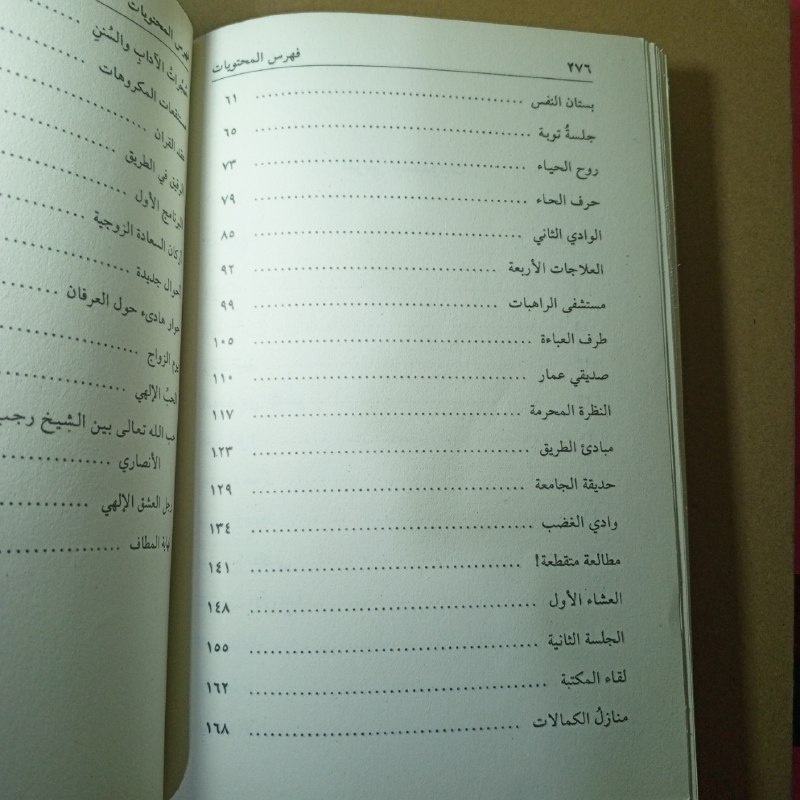 ٢٧٦ فهرس المحتويات
بستان النفس ٦١
جلسةُ توبة ٦٥
روح الحياء ٧٣
حرف الحاء ٧٩
الوادي الثاني ٨٥
العلاجات الأربعة ٩٢
مستشفى الراهبات ٩٩
طرف العباءة ١٠٥
صديقي عمار ١١٠
النظرة المحرمة ١١٧
مبادئ الطريق ١٢٣
حديقة الجامعة ١٢٩
وادي الغضب ١٣٤
مطالعة متقطعة! ١٤١
العشاء الأول ١٤٨
الجلسة الثانية ١٥٥
لقاء المكتبة ١٦٢
منازلُ الكمالات ١٦٨
فهرس المحتويات
الآداب والسُنن
مستنقعات المكروهات
عقد القران
الرفيق في الطريق
البرنامج الأول
أركان السعادة الزوجية
أحوال جديدة
حوار هادىء حول العرفان
يوم الزواج
الحبُ الإلهي
حب الله تعالى بين الشيخ رجب
الأنصاري
رجل العشق الإلهي
نهاية المطاف